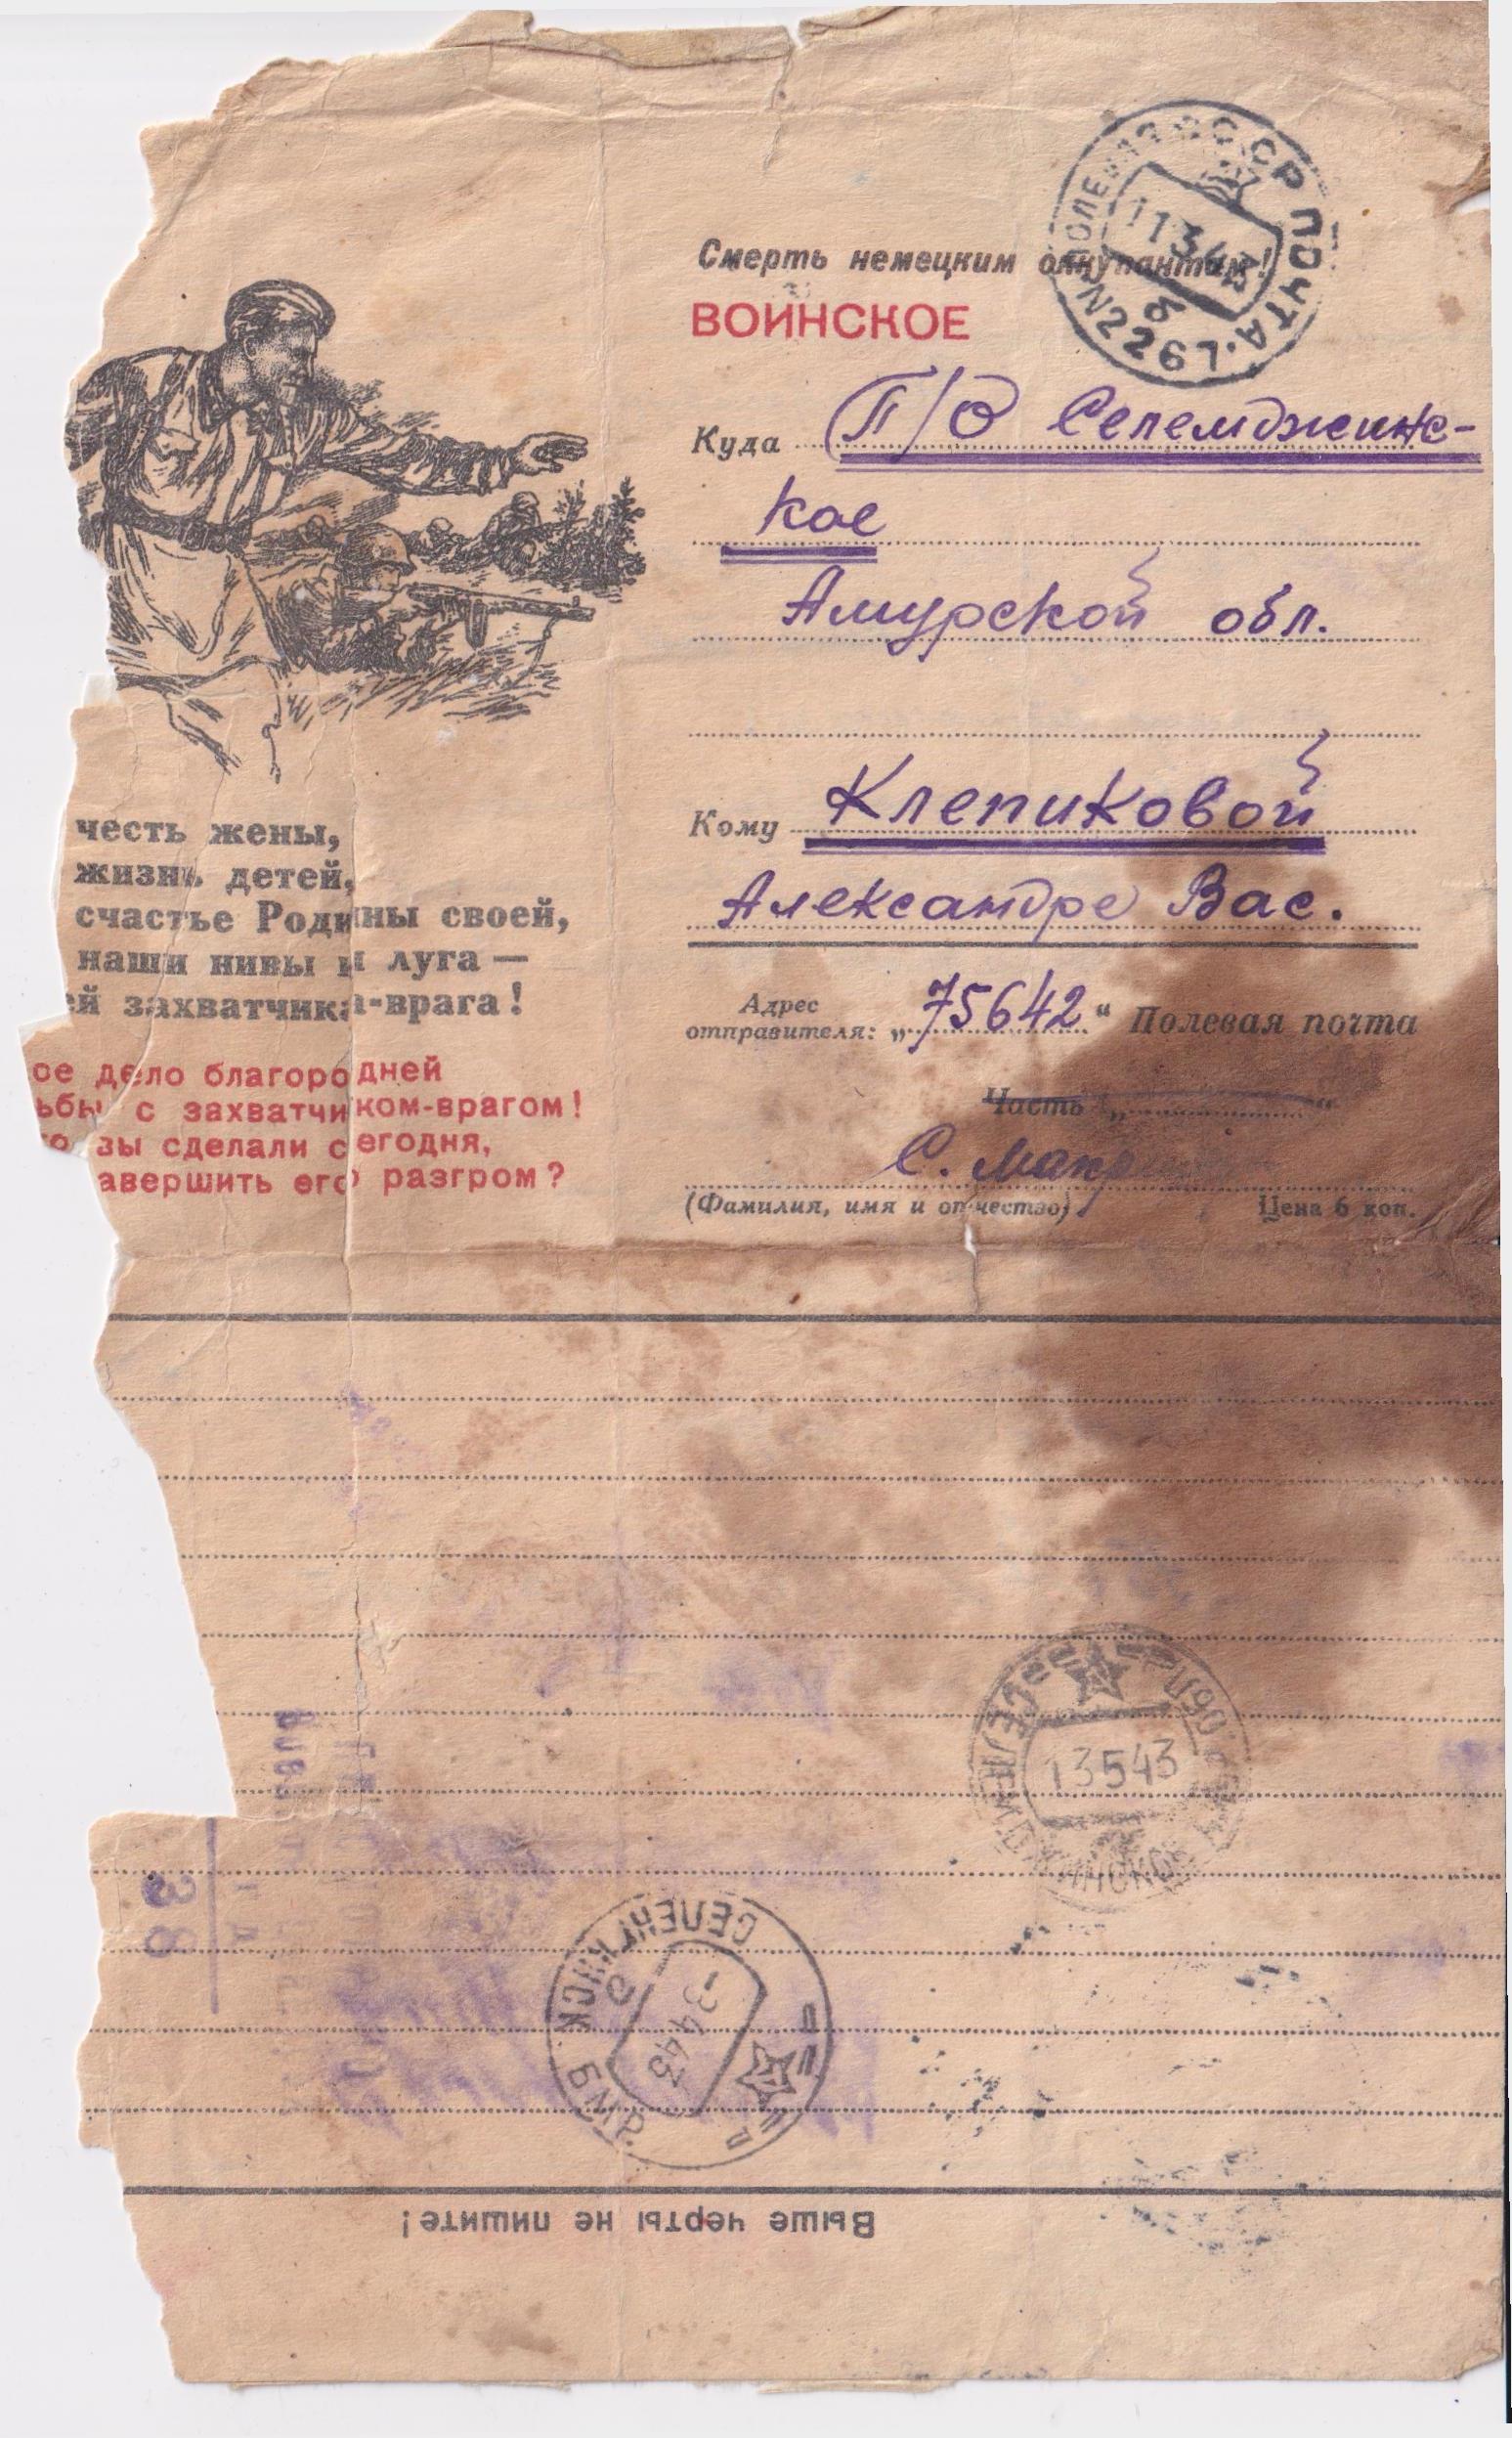 Смерть немецким оккупантам!
ВОИНСКОЕ
Куда П/О Селемджинс-
кое
Амурской обл.
Кому Клепиковой
Александре Вас.
Адрес
отправителя: „75642“ Полевая почта
Часть „ “
С.
(Фамилия, имя и отчество) Цена 6 коп.
СССР ПОЧТА
ПОЛЕВАЯ
N2261
честь жены,
жизнь детей,
счастье Родины своей,
наши нивы и луга —
ей захватчика-врага!
ое дело благородней
ьбы с захватчиком-врагом!
то вы сделали сегодня,
авершить его разгром?
13543
СЕЛЕНГИНСК
-3443
38
Выше черты не пишите!